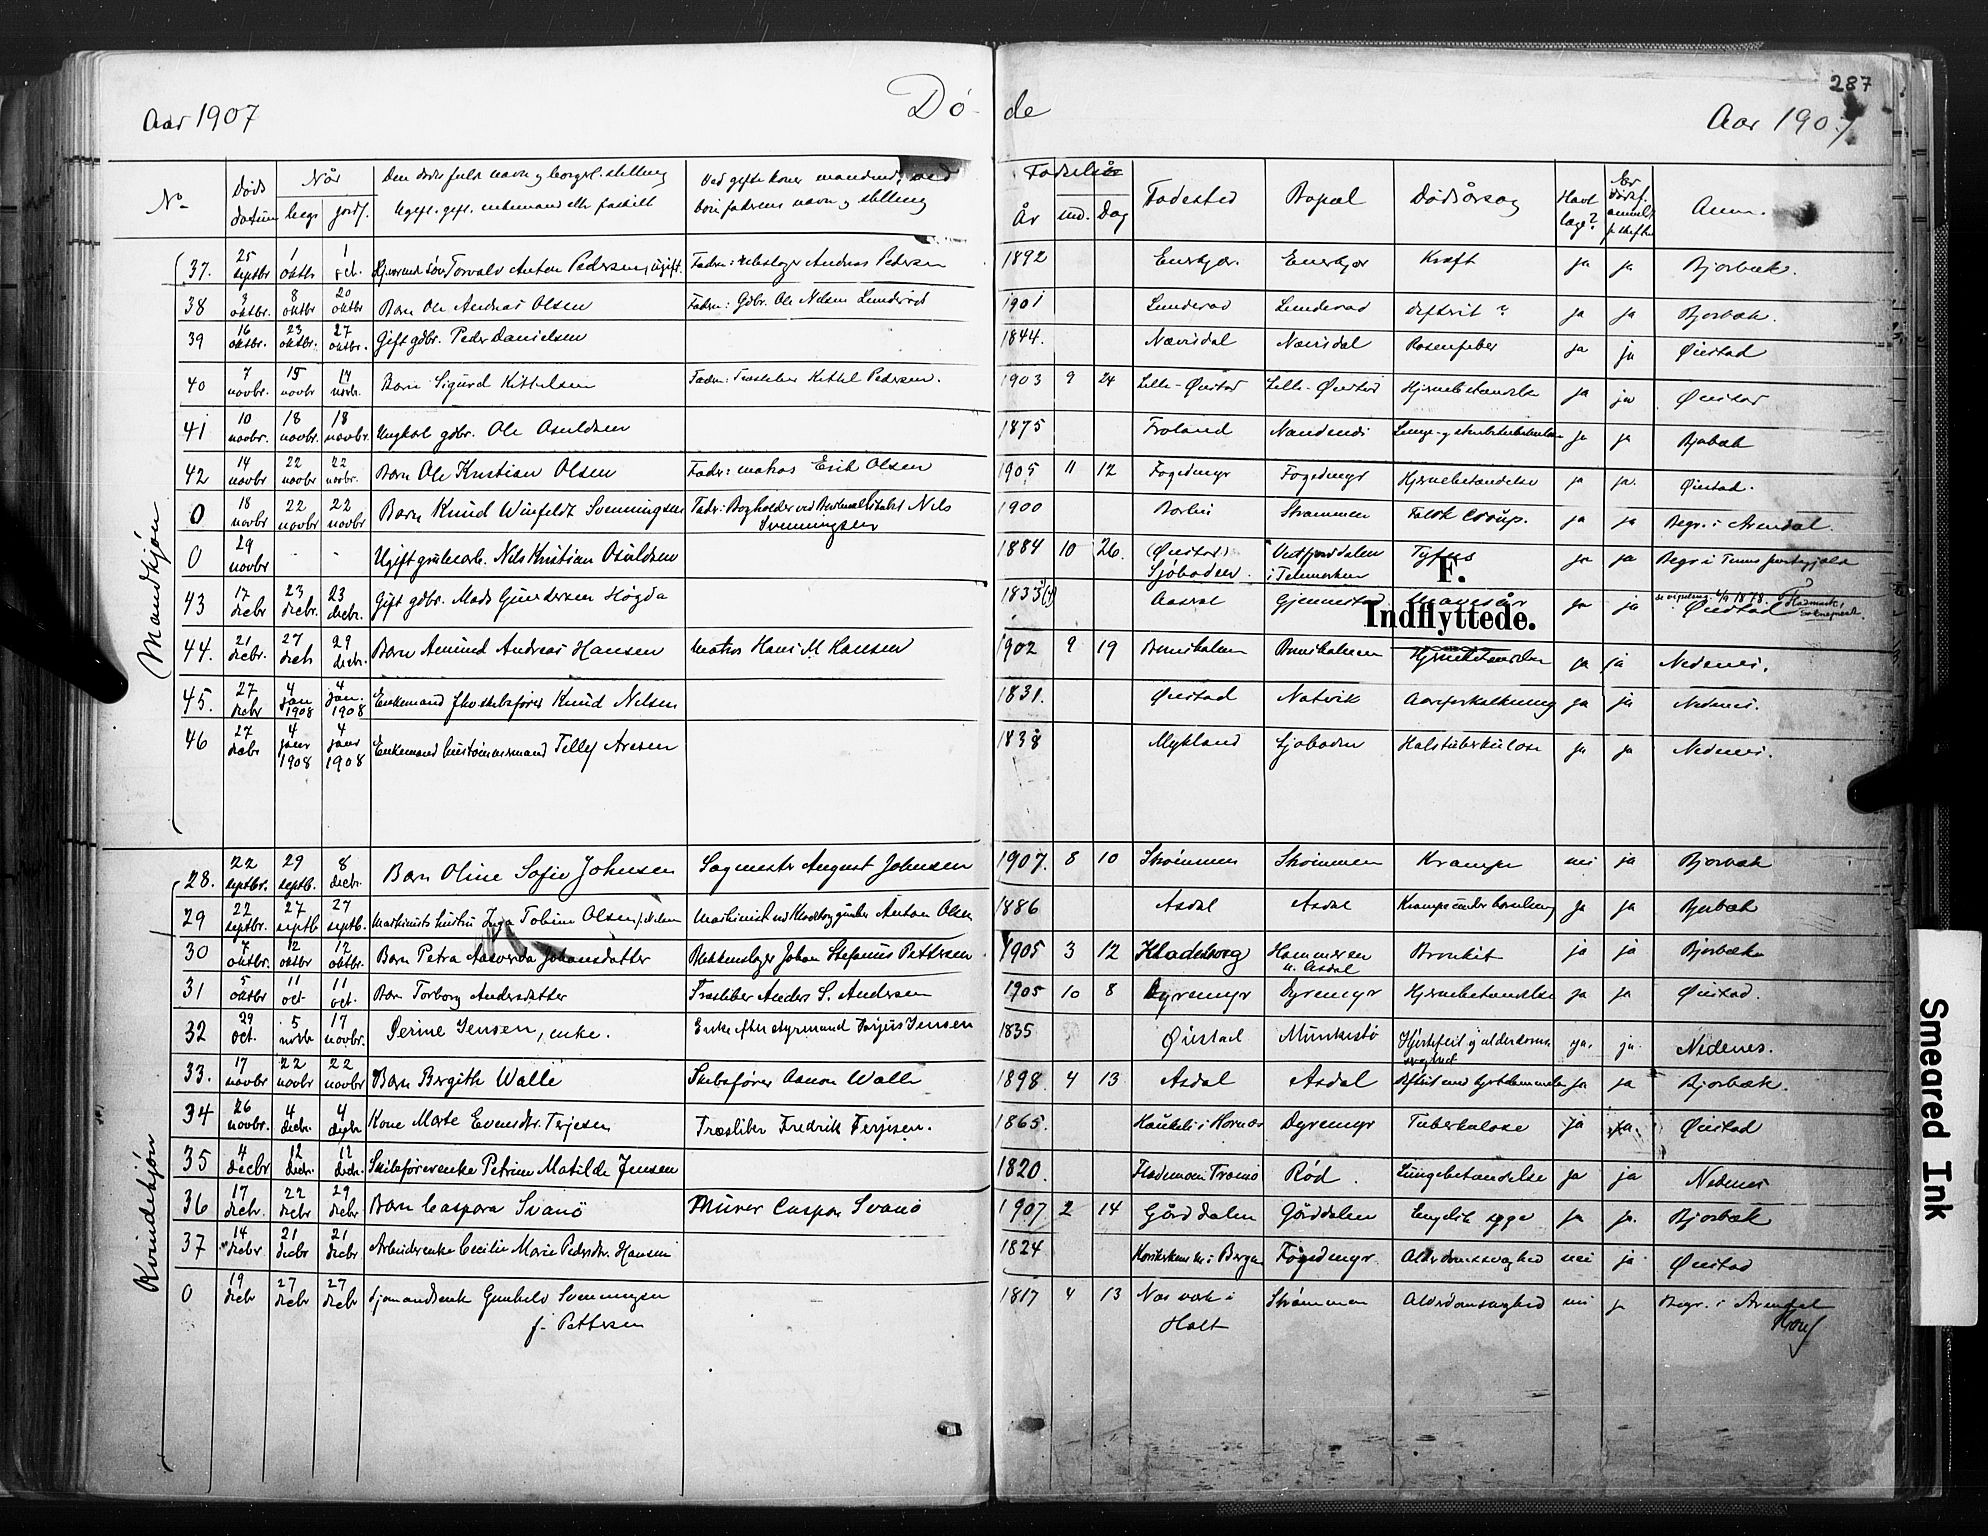 287
Aar 1907 Dø- de Aar 1907
No Døds datum Når begr. jordf.
Ved gifte koner mandens, ved
børn faderens navn og stilling
Fødselsår År md. Dag Fødested Bopæl Dødsårsag Havt læge? Anm.
Mandkjøn
37. 25 septbr 1 oktbr 1 oct. Torvald Anton Pedersen, ugift. Fader: Andreas Pedersen 1892 Kræft ja ja Bjorbæk.
38 3 oktbr. 8 oktbr 20 oktbr Barn Ole Andreas Olsen Fader: Gdbr. Ole Nelsen Lunderød 1901 Lunderød Lunderød difterit ? ja ja Bjorbæk.
39 16 oktbr. 23 oktbr. 27 oktbr. Gift gdbr. Peder Danielsen 1844. Nævisdal Nævisdal Rosenfeber ja ja Øiestad
40 7 novbr. 15 novbr 17 novbr. Barn Sigurd Kittelsen Fader: Kittel Pedersen. 1903 9 24 Lille-Øiestad Lille-Øiestad Hjernebetændelse ja ja Øiestad
41 10 novbr. 18 novbr. 18 novbr. Ungkarl gdbr. Ole Osuldsen 1875 Froland ja ja Bjorbæk
42 14 novbr 22 novbr 22 novbr. Barn Ole Kristian Olsen Fader: matros Erik Olsen 1905 11 12 Fogedmyr Fogedmyr Hjernebetændelse ja ja. Øiestad.
0 18 novbr 22 novbr 22 novbr Barn Knud Winfeldt Svenningsen Fader: Bogholder ved Nils
Svenningsen 1900 Strømmen Falsk Croup. ja ja Begr. i Arendal.
0 29 novbr - - Ugift grubearb. Nils Kristian Osuldsen 1884 10 26. (Øiestad)
Sjøboden. Vestfjorddalen
i Telemarken Tyfus ja ja Begr i Tinns prestegjeld
43 17 decbr 23 decbr. 23 decbr. Gift gdbr. Mads Gundersen Høgda 1833 Mavesår ja ja Øiestad
F.
Indflyttede.
44. 21 decbr. 27 decb 29 decbr. Barn Amund Andreas Hansen Matros Hans M. Hansen 1902 9 19 Hjernebetændelse ja ja Nedenes.
45. 27 decbr 4 jan 1908 4 jan. 1908 Enkemand fhv skibsfører Knud Nelsen 1831. Øiestad Natvik Aareforkalkning ja ja Nedenes.
46 27 decbr 4 janr 1908 4 janr 1908 Enkemand hustømmermand Tellef Aresen 1838 Mykland Sjøboden Halstuberkulose ja ja Nedenes.
Kvindekjøn
28. 22 septbr. 29 septb. 8 decbr. Barn Oline Sofie Johnsen Sagmester August Johnsen 1907. 8 10 Strømmen Strømmen Krampe nei ja Bjorbæk
29 22 septbr. 27 septb 27 septb. Maskinists hustru Inga Tobine Olsen f. Nelsen Maskinist Anton Olsen 1886 Asdal Asdal Krampe under barselseng ja ja Bjorbæk
30 7 oktbr. 12 oktbr 12 oktbr. Barn Petra Johansdatter Blikkenslager Johan Stefanus Pettersen 1905 3 12 Kladeborg Hammeren
u. Asdal Bronkit ja ja Bjorbæk
31 5 oktbr 11 oct 11 oct. Barn Torborg Andersdatter Træsliber Anders S. Andersen 1905 10 8 Dyremyr Dyremyr Hjernebetændelse ja ja Øiestad.
32 29 oct. 5 novbr 17 novbr. Serine Jensen, enke. Enke efter styrmand Terjus Jensen 1835 Øiestad Munkestø Hjertefeil og alderdoms
svaghed ja. ja. Nedenes.
33. 17 novbr 22 novbr 22 novbr Barn Bergith Walle Skibsfører Aanon Walle 1898. 4 13 Asdal Asdal Difterit med hjertelammelse ja ja Bjorbæk.
34 26 novbr. 4 decbr. 4 decbr Kone Marte Evensdtr. Terjesen Træsliber Fredrik Terjesen. 1865. Haukeli i Hornnes Dyremyr Tuberkulose ja ja. Øiestad
35 4 decbr 12 decbr. 12 decbr. Skibsførerenke Petrine Matilde Jensen 1820. Tromø Rød. Lungebetændelse ja ja Nedenes
36 17 decbr. 22 decbr 29 decbr Barn Caspara Svanø Murer Caspar Svanø 1907 2 14 Gårddalen Gårddalen Engelsk syge ja ja. Bjorbæk
37 14 decbr 21 decbr 21 decbr Arbeiderenke Cecilie Marie Pedersdtr. Hansen 1824 Fogedmyr. Alderdomssvaghed nei ja Øiestad
0 19 decbr 27 decbr 27 decbr Sjømandsenke Gunhild Svenningsen
f. Pettersen 1817 4 13 Næs verk i
Holt Strømmen Alderdomsvaghed nei ja Begr. i Arendal
Smeared Ink